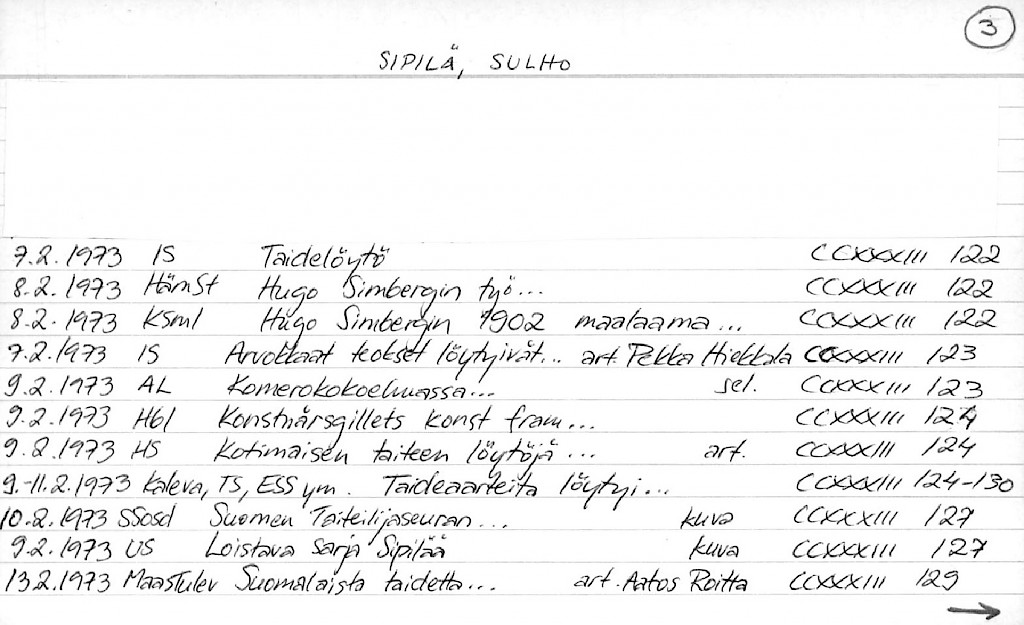 3
SIPILÄ, SULHO
7.2.1973 IS Taidelöytö CCXXXIII 122
8.2.1973 HämSt Hugo Simbergin työ... CCXXXIII 122
8.2.1973 Ksml Hugo Simbergin 1902 maalaama... CCXXXIII 122
7.2.1973 IS Arvokkaat teokset löytyivät... art. Pekka Hiekkala CCXXXIII 123
9.2.1973 AL Komerokokoelmassa... sel. CCXXXIII 123
9.2.1973 Hbl Konstnärsgillets konst fram... CCXXXIII 124
9.2.1973 HS Kotimaisen taiteen löytöjä... art. CCXXXIII 124
9.-11.2.1973 Kaleva, TS, ESS ym. Taideaarteita löytyi... CCXXXIII 124-130
10.2.1973 SSosd Suomen Taiteilijaseuran... kuva CCXXXIII 127
9.2.1973 US Loistava sarja Sipilää kuva CCXXXIII 127
13.2.1973 MaasTulev Suomalaista taidetta... art. Aatos Roitta CCXXXIII 129
→